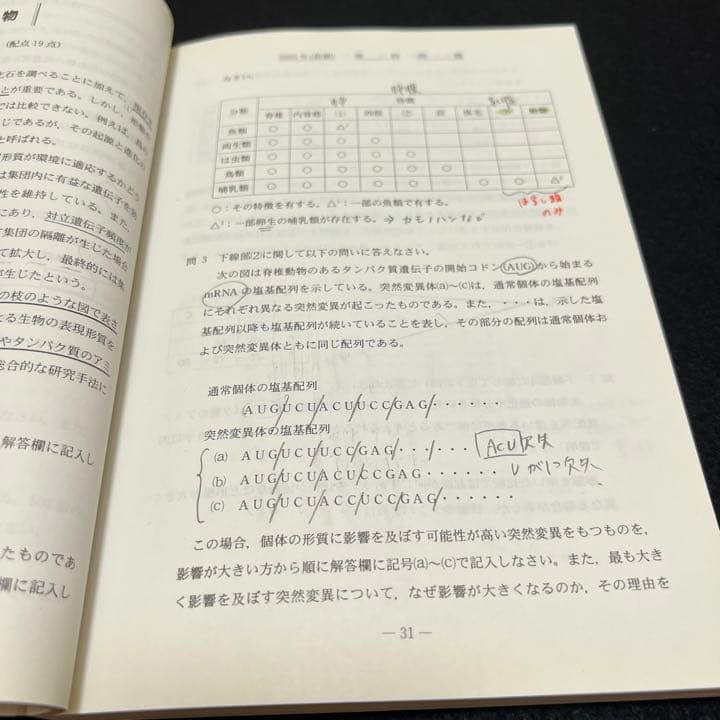 物
(配点19点)
化石を調べることに加えて，
とが重要である。しかし，
では比較できない。例えば，
じであるが，その起源と進化の
と呼ばれる。
形質が環境に適応するかどう
は集団内に有益な遺伝子を
性を維持している。また，
にあり，対立遺伝子頻度が
集団の隔離が生じた場合
て拡大し，最終的には
が生じたという。
の枝のような図で表さ
る生物の表現形質を
やタンパク質のアミ
総合的な研究手法に
解答欄に記入し
たものであ
欄に記入し
なさい。
特徴
分類 脊椎 内骨格 ① 四肢 ②
魚類 ○ ○ △¹
両生類 ○ ○ ○ ○
は虫類 ○ ○ ○ ○ ○
鳥類 ○ ○ ○ ○ ○ ○
哺乳類 ○ ○ ○ ○ ○ ○ ○ ○ △²
○：その特徴を有する。△¹：一部の魚類で有する。
△²：一部卵生の哺乳類が存在する。⇒ カモノハシなど
ほ乳類
のみ
問 3 下線部②に関して以下の問いに答えなさい。
次の図は脊椎動物のあるタンパク質遺伝子の開始コドン(AUG)から始まる
mRNAの塩基配列を示している。突然変異体(a)〜(c)は，通常個体の塩基配列
にそれぞれ異なる突然変異が起こったものである。また，・・・は，示した塩
基配列以降も塩基配列が続いていることを表し，その部分の配列は通常個体お
よび突然変異体ともに同じ配列である。
通常個体の塩基配列
AUGUCUACUUCCGAG・・・・・・
突然変異体の塩基配列
(a) AUGUCUUCCGAG・・・・・・ ACU欠失
(b) AUGUCUACUCCGAG・・・・・・ Uが1つ欠失
(c) AUGUCUACCUCCGAG・・・・・・
この場合，個体の形質に影響を及ぼす可能性が高い突然変異をもつものを，
影響が大きい方から順に解答欄に記号(a)〜(c)で記入しなさい。また，最も大き
く影響を及ぼす突然変異について，なぜ影響が大きくなるのか，その理由を
— 31 —